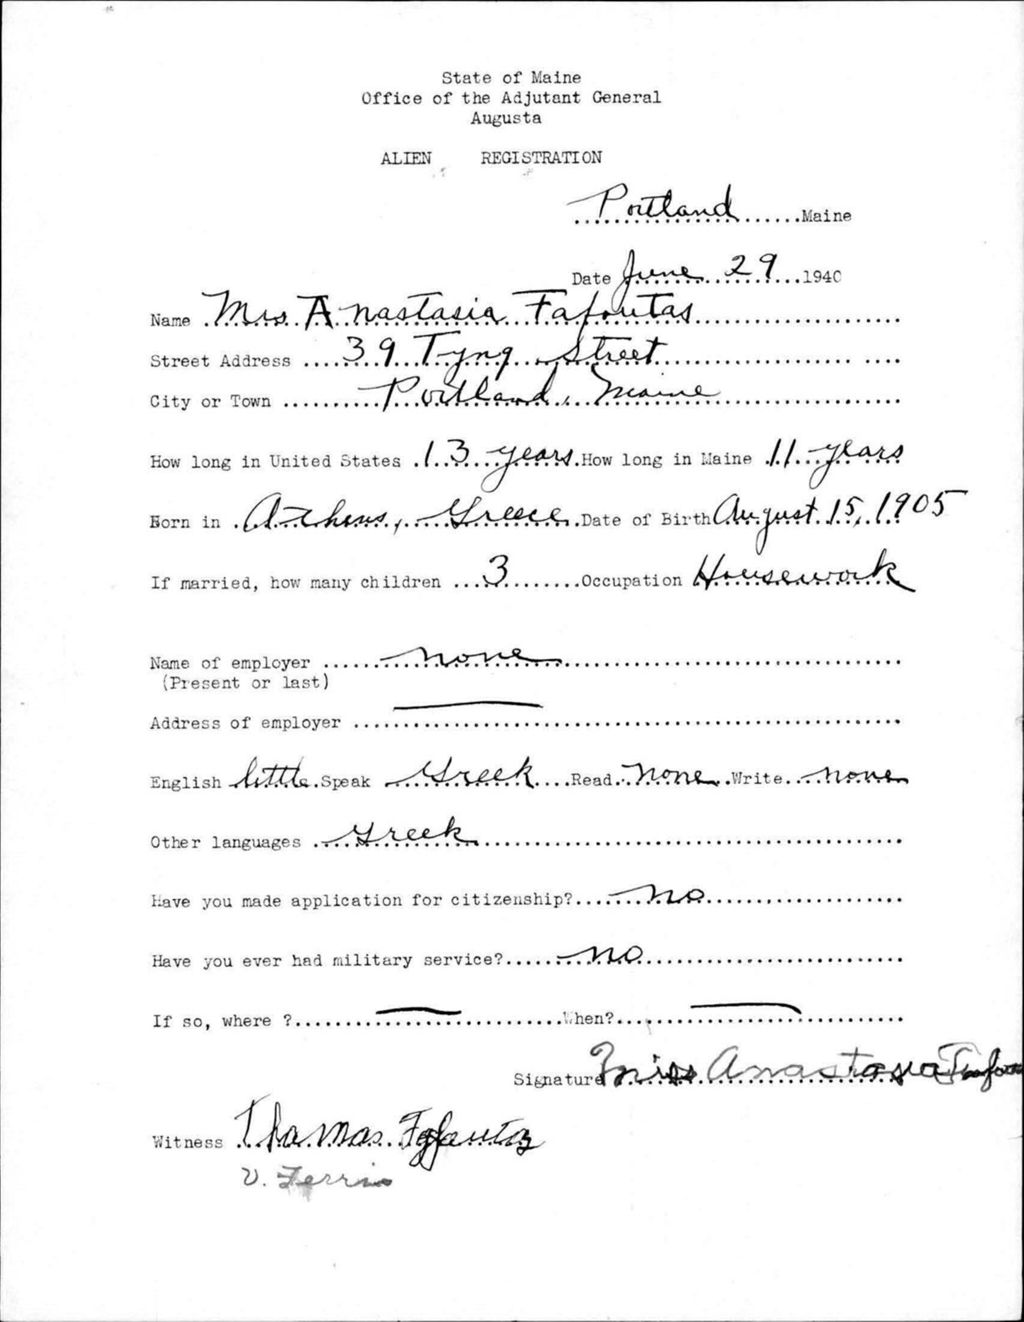 State of Maine
Office of the Adjutant General
Augusta
ALIEN REGISTRATION
Portland Maine
Date June 29 1940
Name Mrs Anastasia Fafoutas
Street Address 39 Tyng Street
City or Town Portland, Maine
How long in United States 13 years How long in Maine 11 years
Born in Athens, Greece Date of Birth August 15, 1905
If married, how many children 3 Occupation Housework
Name of employer none
(Present or last)
Address of employer
English little Speak Greek Read None Write none
Other languages Greek
Have you made application for citizenship? no
Have you ever had military service? no
If so, where ? When?
Signature Miss Anastasia
Witness Thomas Fafoutas
V. Ferris